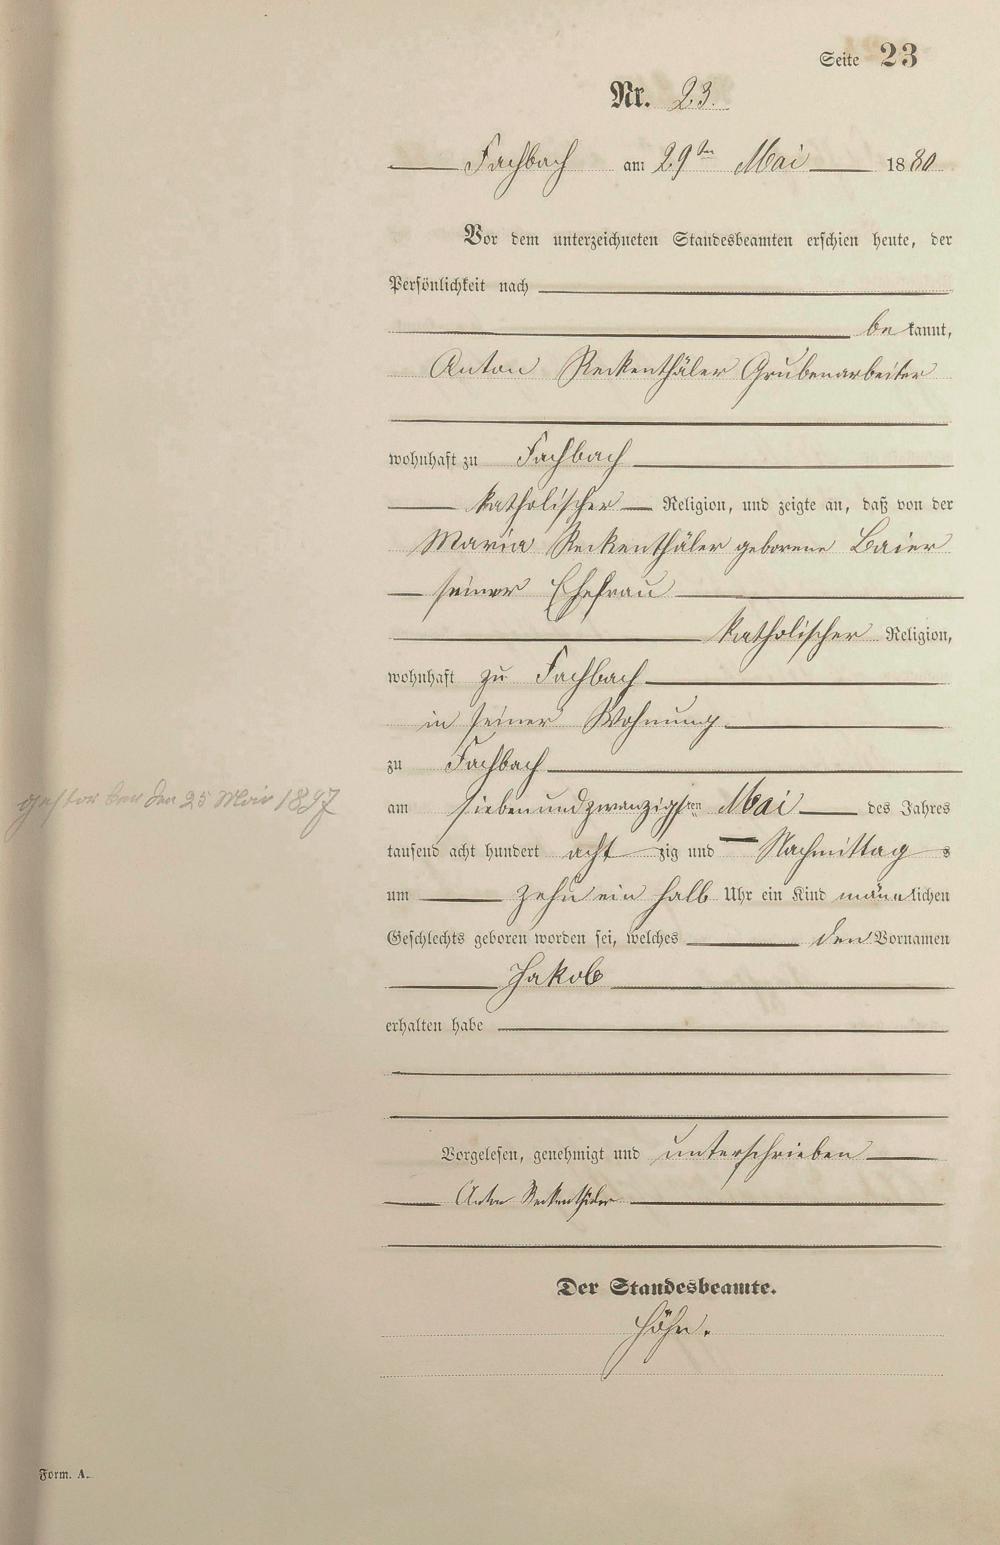 Seite 23
Nr. 23.
Fachbach am 29ten Mai 1880
Vor dem unterzeichneten Standesbeamten erschien heute, der
Persönlichkeit nach
bekannt,
Anton Reckenthäler Grubenarbeiter
wohnhaft zu Fachbach
katholischer Religion, und zeigte an, daß von der
Maria Reckenthäler geborene Baier
seiner Ehefrau
katholischer Religion,
wohnhaft zu Fachbach
in seiner Wohnung
zu Fachbach
gestorben den 25 Mai 1897
am siebenundzwanzigsten Mai des Jahres
tausend acht hundert achtzig und Nachmittags
um zehn ein halb Uhr ein Kind männlichen
Geschlechts geboren worden sei, welches den Vornamen
Jakob
erhalten habe
Vorgelesen, genehmigt und unterschrieben
Anton Reckenthäler
Der Standesbeamte.
Höhn.
Form. A.